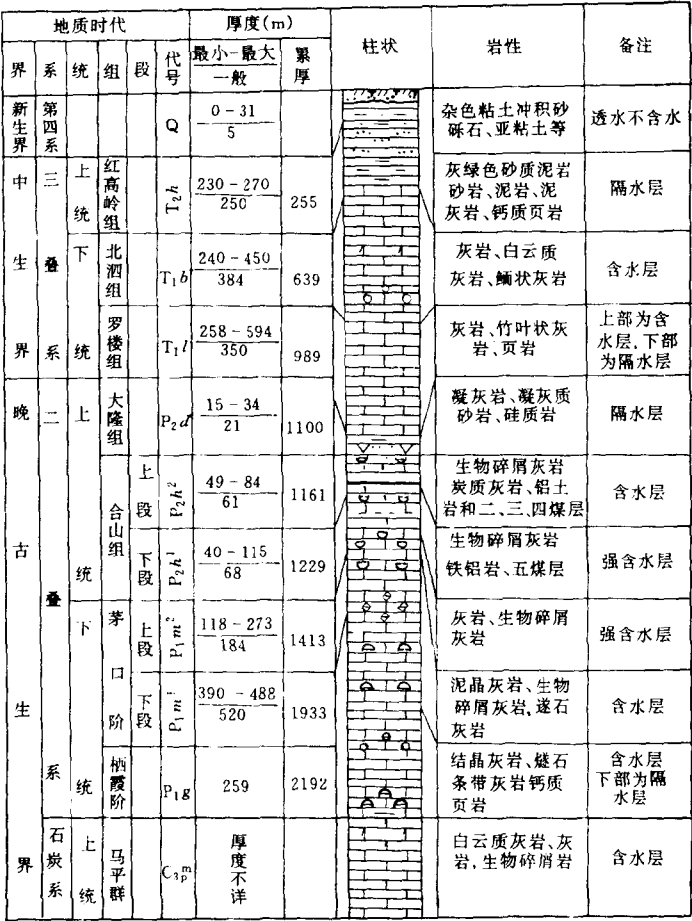 地质时代 厚度(m) 柱状 岩性 备注
界 系 统 组 段 代号 最小-最大 一般 累厚
新生界 第四系 Q 0-31 5 杂色粘土冲积砂 砾石、亚粘土等 透水不含水
中生界 三叠系 上统 红高岭组 T₂h 230-270 250 255 灰绿色砂质泥岩 砂岩、泥岩、泥 灰岩、钙质页岩 隔水层
下统 北泗组 T₁b 240-450 384 639 灰岩、白云质 灰岩、鲕状灰岩 含水层
罗楼组 T₁l 258-594 350 989 灰岩、竹叶状灰 岩、页岩 上部为含 水层,下部 为隔水层
晚古生界 二叠系 上统 大隆组 P₂d 15-34 21 1100 凝灰岩、凝灰质 砂岩、硅质岩 隔水层
合山组 上段 P₂h² 49-84 61 1161 生物碎屑灰岩 炭质灰岩、铝土 岩和二、三、四煤层 含水层
下段 P₂h¹ 40-115 68 1229 生物碎屑灰岩 铁铝岩、五煤层 强含水层
下统 茅口阶 上段 P₁m² 118-273 184 1413 灰岩、生物碎屑 灰岩 强含水层
下段 P₁m¹ 390-488 520 1933 泥晶灰岩、生物 碎屑灰岩,遂石 灰岩 含水层
栖霞阶 P₁g 259 2192 结晶灰岩、燧石 条带灰岩钙质 页岩 含水层 下部为隔 水层
石炭系 上统 马平群 C₃pᵐ 厚度不详 白云质灰岩、灰 岩,生物碎屑岩 含水层